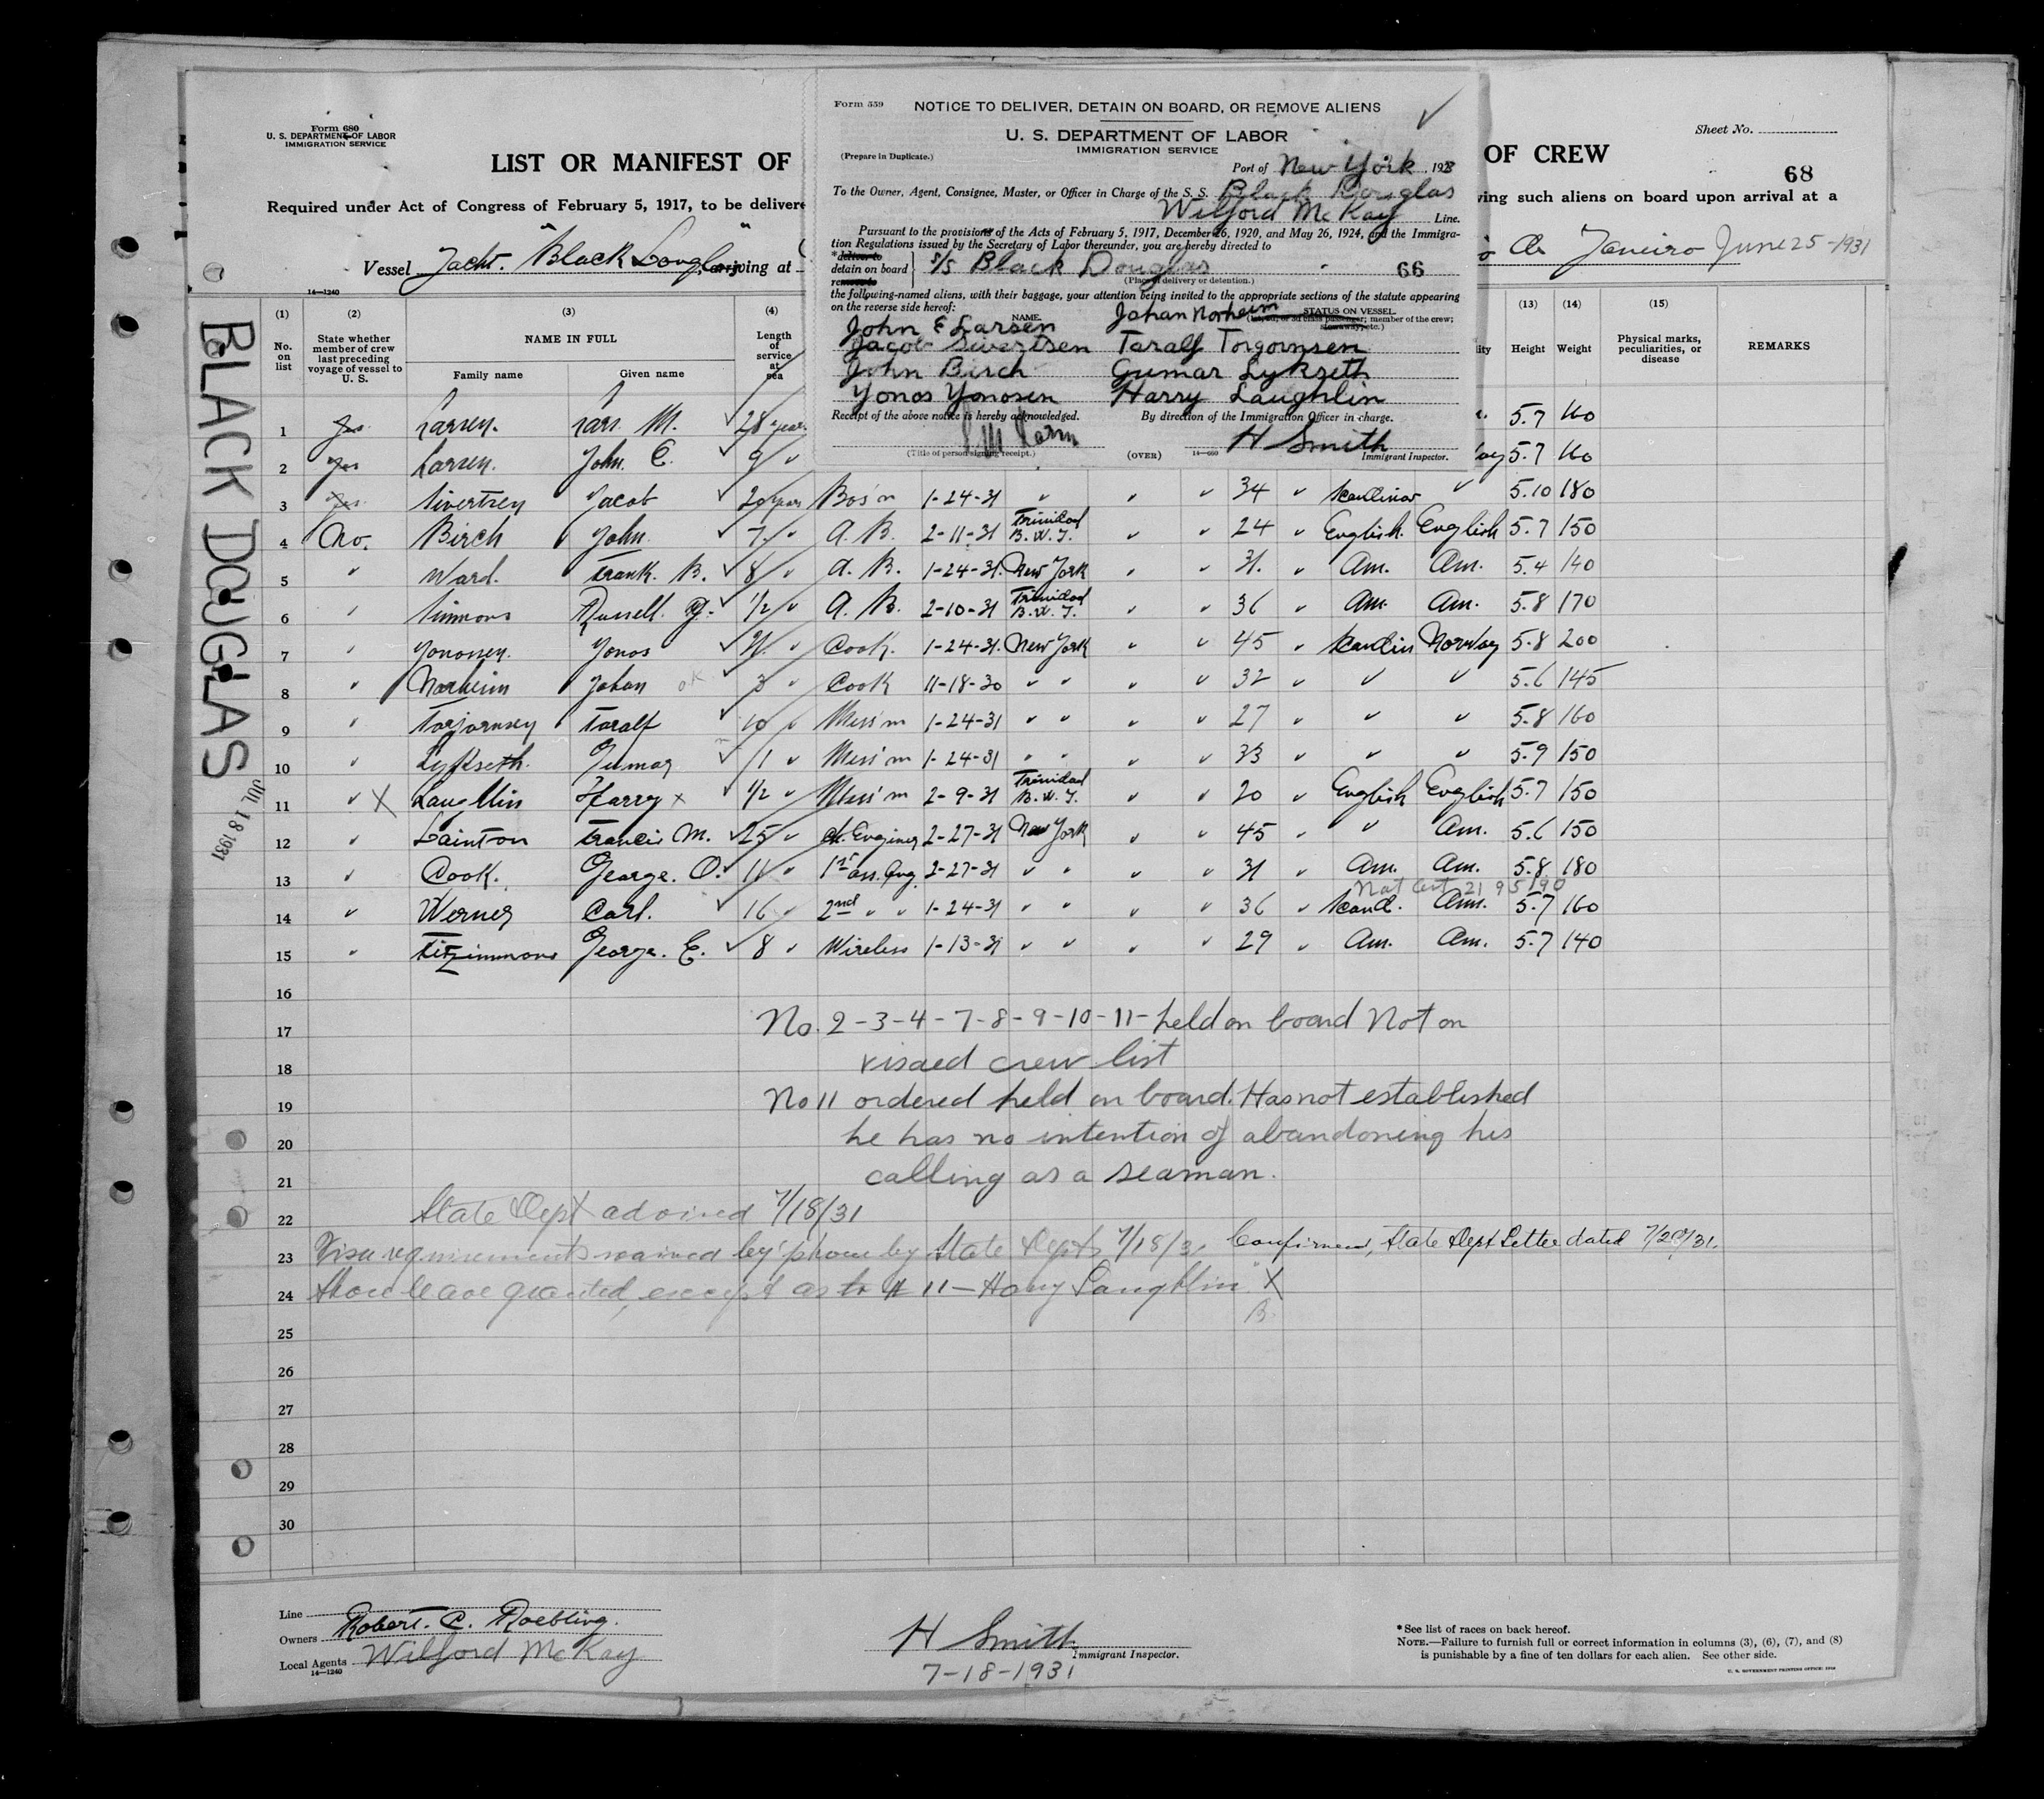 Form 680
U. S. DEPARTMENT OF LABOR
IMMIGRATION SERVICE
LIST OR MANIFEST OF
OF CREW
Sheet No.
68
Required under Act of Congress of February 5, 1917, to be delivere
ving such aliens on board upon arrival at a
Vessel Yacht. "Black Douglas" arriving at
de Janeiro June 25-1931
14—1240
Form 559
NOTICE TO DELIVER, DETAIN ON BOARD, OR REMOVE ALIENS
U. S. DEPARTMENT OF LABOR
IMMIGRATION SERVICE
(Prepare in Duplicate.)
Port of New York, 193
To the Owner, Agent, Consignee, Master, or Officer in Charge of the S. S. Black Douglas
Wilford McKay Line.
Pursuant to the provisions of the Acts of February 5, 1917, December 26, 1920, and May 26, 1924, and the Immigra-
tion Regulations issued by the Secretary of Labor thereunder, you are hereby directed to
*deliver to
detain on board
remove to
S/S Black Douglas
66
(Place of delivery or detention.)
the following-named aliens, with their baggage, your attention being invited to the appropriate sections of the statute appearing
on the reverse side hereof:
NAME.
STATUS ON VESSEL
class passenger; member of the crew;
stowaway, etc.)
John E Larsen Johan Norheim
Jacob Sivertsen Taralf Torgornsen
John Birch Gumar Lykseth
Yonos Yonosen Harry Laughlin
Receipt of the above notice is hereby acknowledged.
By direction of the Immigration Officer in charge.
H Smith
(Title of person signing receipt.)
(OVER)
14—660
Immigrant Inspector.
(1) (2) (3) (4) (13) (14) (15)
No. on list
State whether member of crew last preceding voyage of vessel to U. S.
NAME IN FULL
Family name
Given name
Length of service at sea
Height
Weight
Physical marks, peculiarities, or disease
REMARKS
1 Yes Larsen. Lars M. ✓ 28 years 5.7 160
2 Yes Larsen. John. E. ✓ 9 ✓ 5.7 160
3 Yes Sivertsen Jacob ✓ 20 years Bos'n 1-24-31 ✓ ✓ ✓ 34 ✓ Scandinav ✓ 5.10 180
4 No. Birch John. ✓ 7 ✓ A. B. 2-11-31 Trinidad B. W. I. ✓ ✓ 24 ✓ English. English 5.7 150
5 ✓ Ward. Frank. B. ✓ 8 ✓ A. B. 1-24-31. New York ✓ ✓ 31. ✓ Am. Am. 5.4 140
6 ✓ Simmons Russell. G. ✓ 1/2 ✓ A. B. 2-10-31 Trinidad B. W. I. ✓ ✓ 36 ✓ Am. Am. 5.8 170
7 ✓ Yonossen. Yonos ✓ ✓ Cook. 1-24-31. New York ✓ ✓ 45 ✓ Scandin Norway 5.8 200
8 ✓ Norheim Johan ok ✓ 3 ✓ Cook 11-18-30 ✓ ✓ ✓ ✓ 32 ✓ ✓ ✓ 5.6 145
9 ✓ Torjornsen Taralf ✓ 10 ✓ Mess'm 1-24-31 ✓ ✓ ✓ ✓ 27 ✓ ✓ ✓ 5.8 160
10 ✓ Lykseth. Gumar ✓ 1 ✓ Mess'm 1-24-31 ✓ ✓ ✓ ✓ 33 ✓ ✓ ✓ 5.9 150
11 ✓ X Laughlin Harry x ✓ 1/2 ✓ Mess'm 2-9-31 Trinidad B. W. I. ✓ ✓ 20 ✓ English English 5.7 150
12 ✓ Lainton Francis M. ✓ 25 ✓ Ch. Engineer 2-27-31 New York ✓ ✓ 45 ✓ ✓ Am. 5.6 150
13 ✓ Cook. George. O. ✓ 11 ✓ 1st ass. Eng. 2-27-31 ✓ ✓ ✓ ✓ 31 ✓ Am. Am. 5.8 180
Nat Cert 2195190
14 ✓ Werner Carl. ✓ 16 ✓ 2nd ✓ ✓ 1-24-31 ✓ ✓ ✓ ✓ 36 ✓ Scand. Am. 5.7 160
15 ✓ Fitzimmons George. E. ✓ 8 ✓ Wireless 1-13-31 ✓ ✓ ✓ ✓ 29 ✓ Am. Am. 5.7 140
16
17 No. 2-3-4-7-8-9-10-11- held on board Not on
18 visaed crew list
19 No 11 ordered held on board. Has not established
20 he has no intention of abandoning his
21 calling as a seaman.
22 State Dept advised 7/18/31
23 Visa requirements waived by phone by State Dept 7/18/31 Confirmed, State Dept Letter dated 7/20/31.
24 Shore leave granted, except as to # 11 — Harry Laughlin X
B.
25
26
27
28
29
30
BLACK DOUGLAS
JUL 18 1931
Line
Owners Robert. C. Roebling.
Local Agents Wilford McKay
14—1240
H Smith
Immigrant Inspector.
7-18-1931
*See list of races on back hereof.
NOTE.—Failure to furnish full or correct information in columns (3), (6), (7), and (8)
is punishable by a fine of ten dollars for each alien. See other side.
U. S. GOVERNMENT PRINTING OFFICE